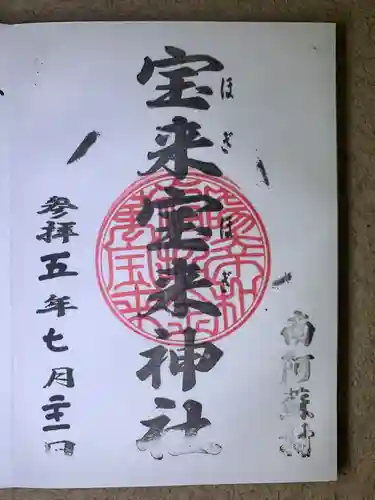 南阿蘇村
宝来宝来神社
ほぎ ほぎ
参拝五年七月二十一日